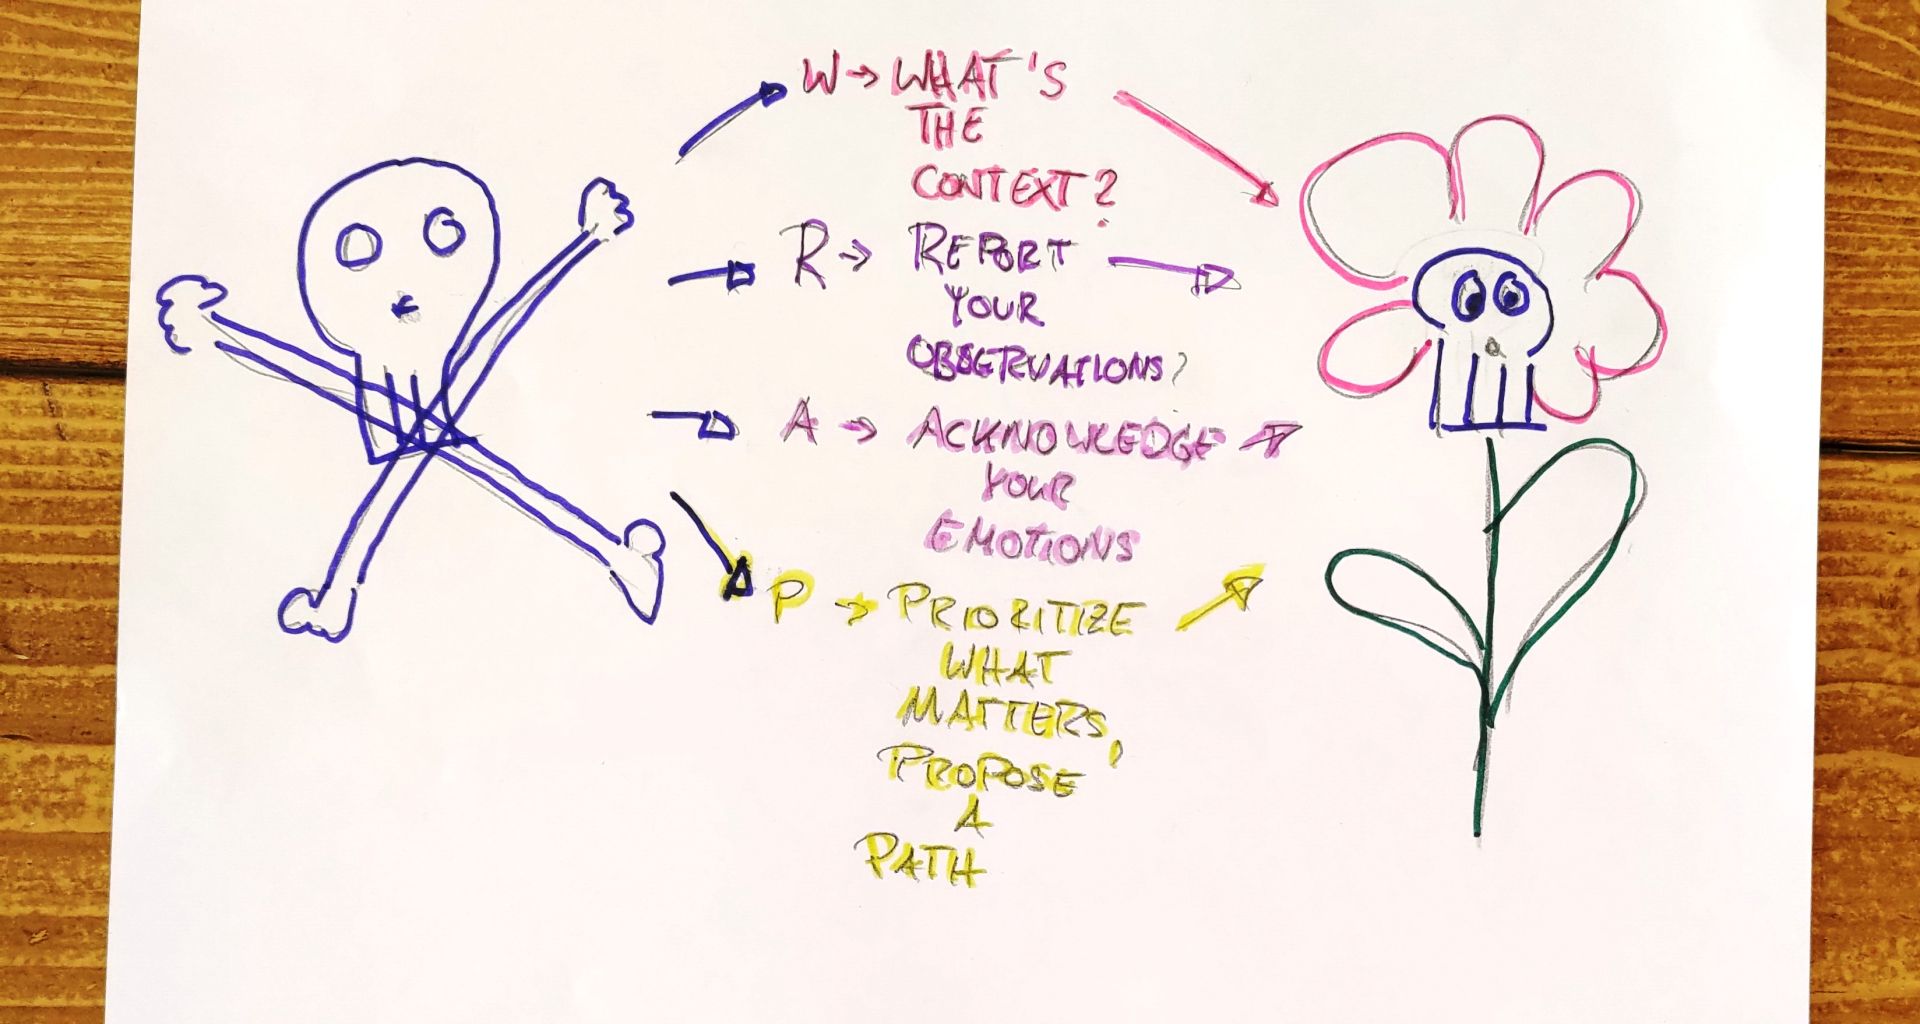 W → WHAT'S
THE
CONTEXT?
R → REPORT
YOUR
OBSERVATIONS?
A → ACKNOWLEDGE
YOUR
EMOTIONS
P → PRIORITIZE
WHAT
MATTERS,
PROPOSE
A
PATH